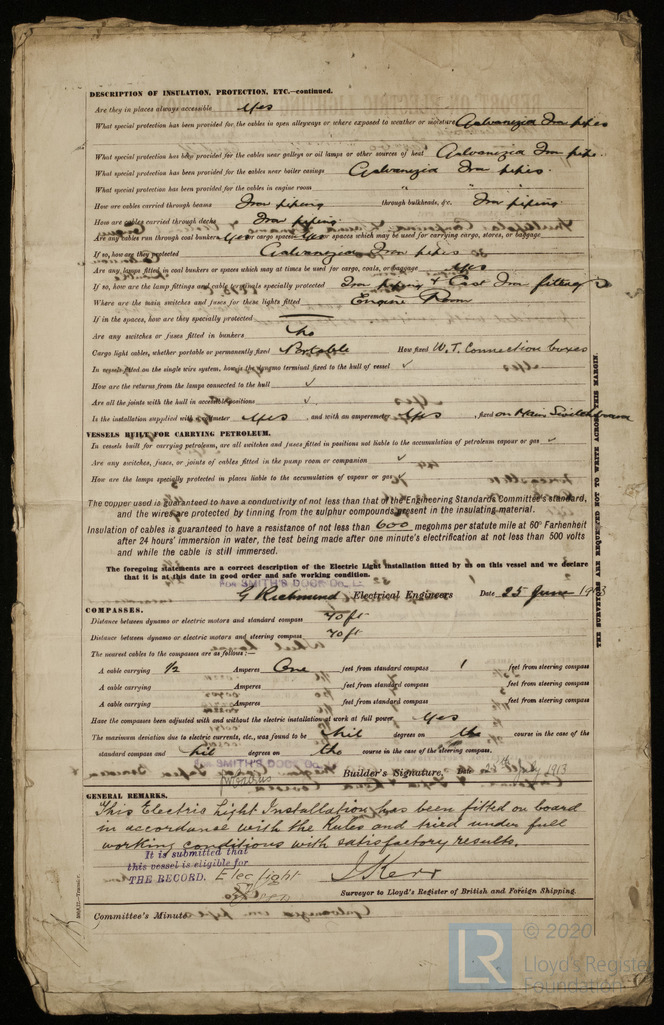 DESCRIPTION OF INSULATION, PROTECTION, ETC.—continued.
Are they in places always accessible Yes
What special protection has been provided for the cables in open alleyways or where exposed to weather or moisture Galvanezia Iron pipes
What special protection has been provided for the cables near galleys or oil lamps or other sources of heat Galvanezia Iron pipe.
What special protection has been provided for the cables near boiler casings Galvanezia Iron pipes.
What special protection has been provided for the cables in engine room " " "
How are cables carried through beams Iron piping through bulkheads, &c. Iron piping.
How are cables carried through decks Iron piping.
Are any cables run through coal bunkers Yes or cargo spaces Yes or spaces which may be used for carrying cargo, stores, or baggage
If so, how are they protected Galvanezia Iron pipes
Are any lamps fitted in coal bunkers or spaces which may at times be used for cargo, coals, or baggage Yes
If so, how are the lamp fittings and cable terminals specially protected Iron piping & Cast Iron fittings
Where are the main switches and fuses for these lights fitted Engine Room
If in the spaces, how are they specially protected
Are any switches or fuses fitted in bunkers No
Cargo light cables, whether portable or permanently fixed Portable How fixed W.T. Connection boxes
In vessels fitted on the single wire system, how is the dynamo terminal fixed to the hull of vessel ✓
How are the returns from the lamps connected to the hull ✓
Are all the joints with the hull in accessible positions ✓
Is the installation supplied with a voltmeter Yes, and with an amperemeter Yes, fixed on Main Switchboard
VESSELS BUILT FOR CARRYING PETROLEUM.
In vessels built for carrying petroleum, are all switches and fuses fitted in positions not liable to the accumulation of petroleum vapour or gas ✓
Are any switches, fuses, or joints of cables fitted in the pump room or companion ✓
How are the lamps specially protected in places liable to the accumulation of vapour or gas ✓
The copper used is guaranteed to have a conductivity of not less than that of the Engineering Standards Committee's standard,
and the wires are protected by tinning from the sulphur compounds present in the insulating material.
Insulation of cables is guaranteed to have a resistance of not less than 600 megohms per statute mile at 60° Farhenheit
after 24 hours' immersion in water, the test being made after one minute's electrification at not less than 500 volts
and while the cable is still immersed.
The foregoing statements are a correct description of the Electric Light installation fitted by us on this vessel and we declare
that it is at this date in good order and safe working condition.
FOR SMITH'S DOCK Co., Ld.
G Richmond Electrical Engineers Date 25 June 1913
COMPASSES.
Distance between dynamo or electric motors and standard compass 70 ft
Distance between dynamo or electric motors and steering compass 70 ft
The nearest cables to the compasses are as follows:—
A cable carrying 1/2 Amperes One feet from standard compass 1 feet from steering compass
A cable carrying Amperes feet from standard compass feet from steering compass
A cable carrying Amperes feet from standard compass feet from steering compass
Have the compasses been adjusted with and without the electric installation at work at full power Yes
The maximum deviation due to electric currents, etc., was found to be Nil degrees on the course in the case of the
standard compass and Nil degrees on the course in the case of the steering compass.
FOR SMITH'S DOCK Co., Ld.
Builder's Signature. Date 1913
GENERAL REMARKS.
This Electric Light Installation has been fitted on board
in accordance with the Rules and tried under full
working conditions with satisfactory results.
It is submitted that
this vessel is eligible for
THE RECORD. Elec light
J. Kerr
Surveyor to Lloyd's Register of British and Foreign Shipping.
Committee's Minute
THE SURVEYORS ARE REQUESTED NOT TO WRITE ACROSS THIS MARGIN.
LR
© 2020
Lloyd's Register
Foundation